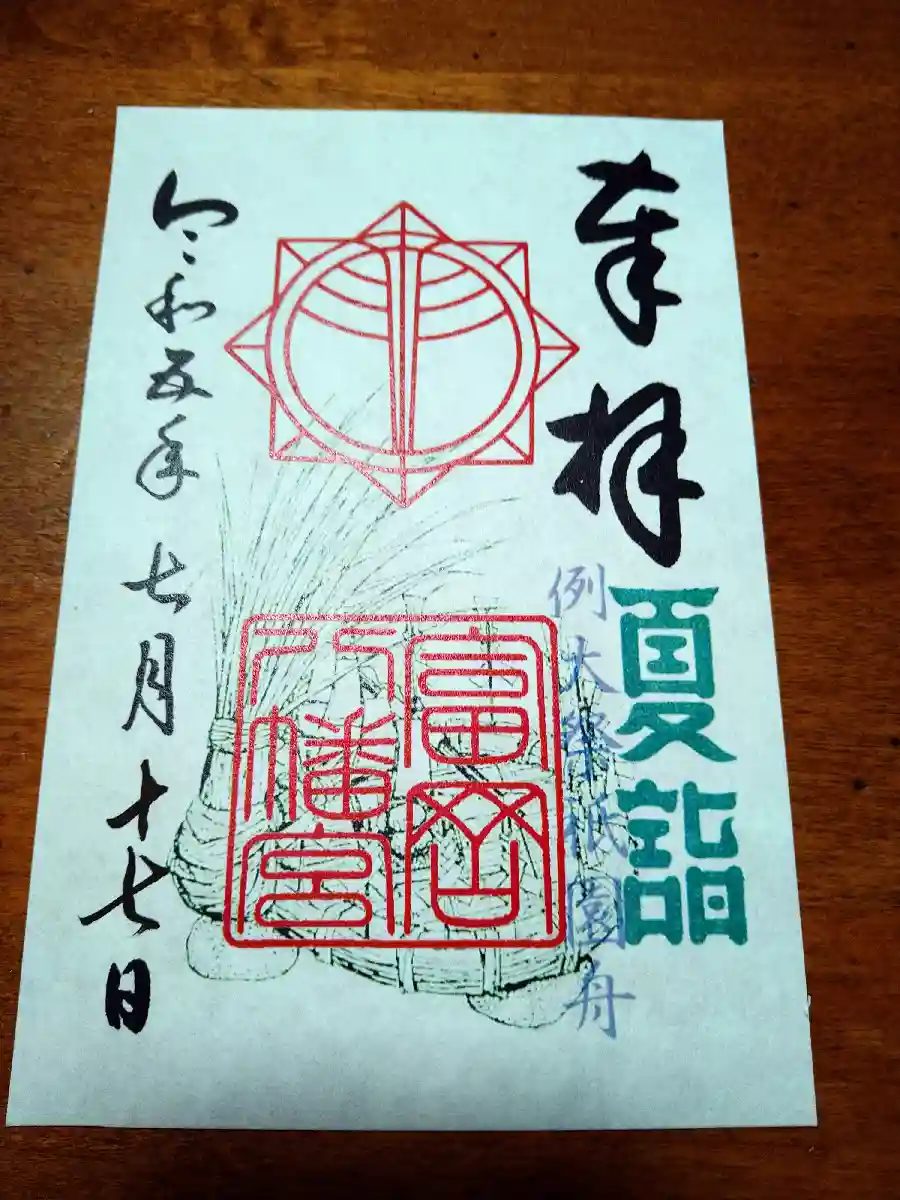 奉拝
夏詣
例大祭祇園舟
富岡
八幡宮
令和五年七月十七日